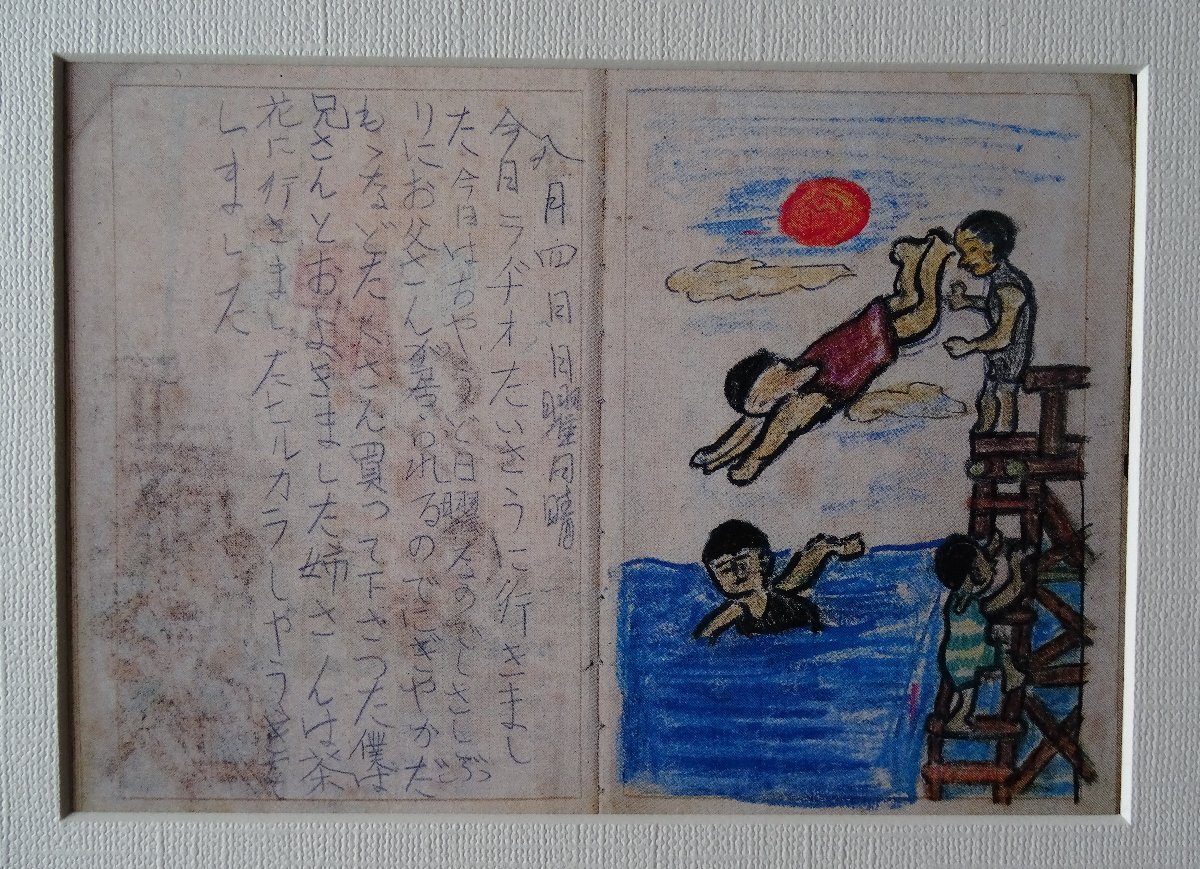 八月四日日曜日晴
今日ラヂオたいさうに行きまし
た今日は と日曜なのでひさしぶ
りにお父さんが居られるのでにぎやかだ
もゝなどたくさん買って下さつた僕は
兄さんとおよぎました姉さんは茶
花に行きましたヒルカラしやうぎを
しました